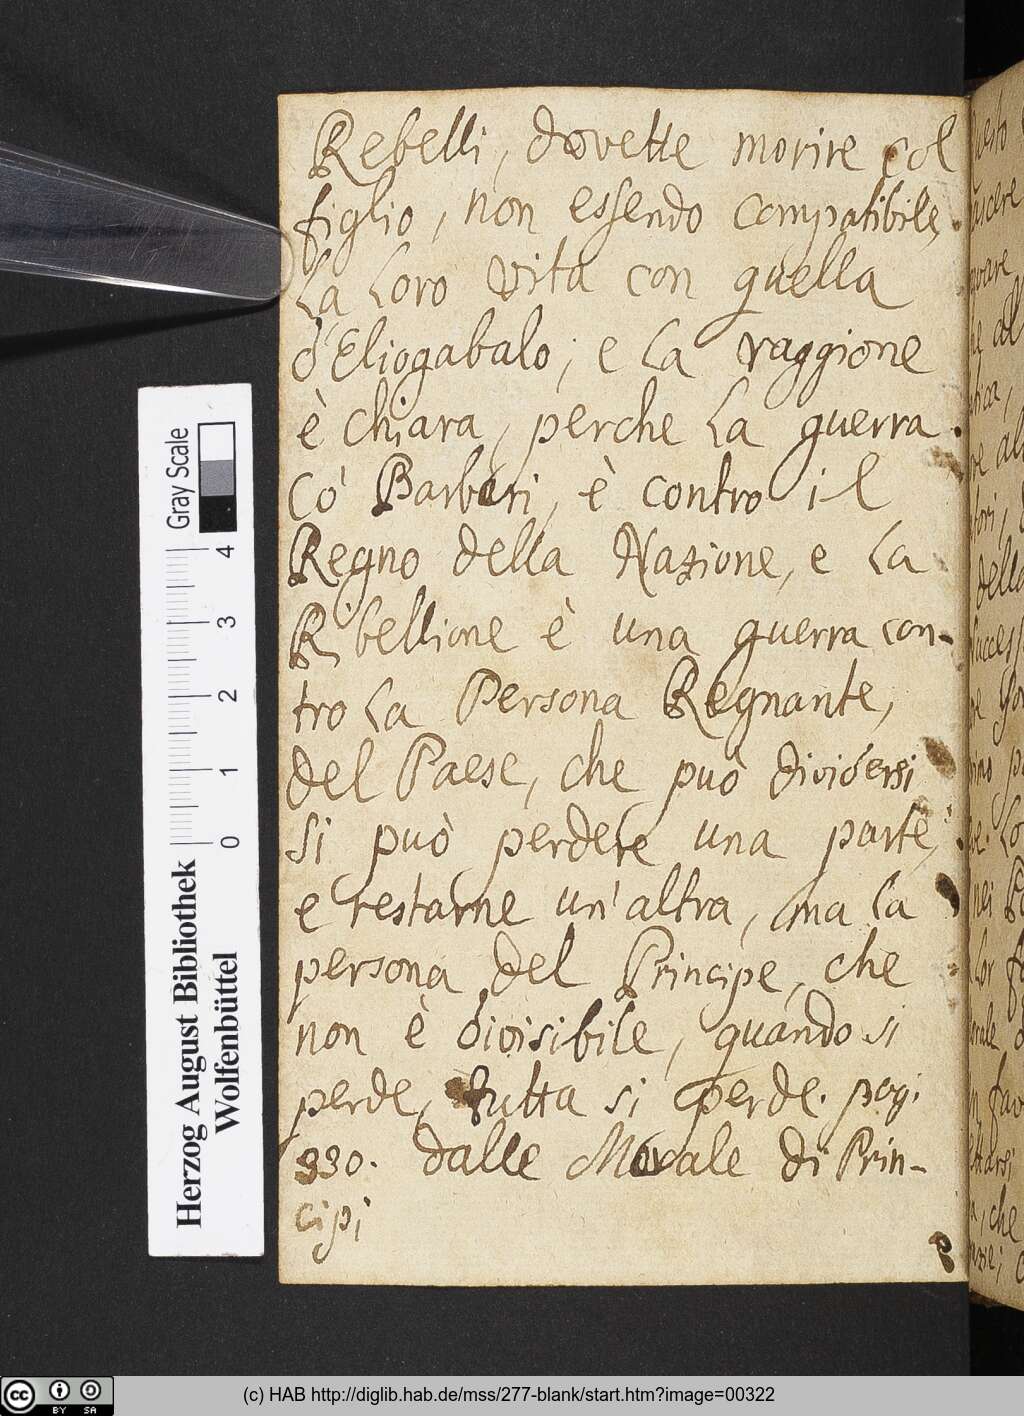 Rebelli, dovette morire col
figlio, non essendo compatibile,
La Loro vita con quella
d'Eliogabalo; e La raggione
è chiara, perche La guerra
Co' Barbari, è contro il
Regno della Nazione, e La
Ribellione è una guerra con-
tro La Persona Regnante,
del Paese, che può dividersi
si può perdere una parte,
e restarne un'altra, ma La
persona del Principe, che
non è divisibile, quando si
perde, tutta si perde. pag.
330. dalle Morale di Prin-
cipi
Gray Scale
0 1 2 3 4
Herzog August Bibliothek
Wolfenbüttel
(c) HAB http://diglib.hab.de/mss/277-blank/start.htm?image=00322
cc BY SA